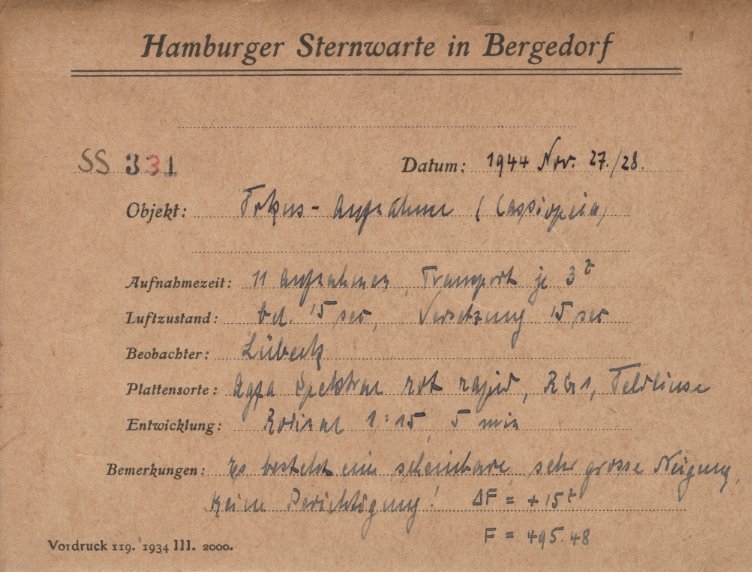 Hamburger Sternwarte in Bergedorf
SS 331 Datum: 1944 Nov. 27./28.
Objekt: Fokus-Aufnahme (Cassiopeia)
Aufnahmezeit: 11 Aufnahmen, Transport je 3
Luftzustand: bel. 15 sec, Versetzung 15 sec
Beobachter: Lübeck
Plattensorte: Agfa Spektral rot rapid, RG1, Feldlinse
Entwicklung: Rodinal 1:15, 5 min
Bemerkungen: Es besteht eine scheinbare, sehr grosse Neigung,
Keine Berichtigung! ΔF = +15
F = 495.48
Vordruck 119. 1934 III. 2000.